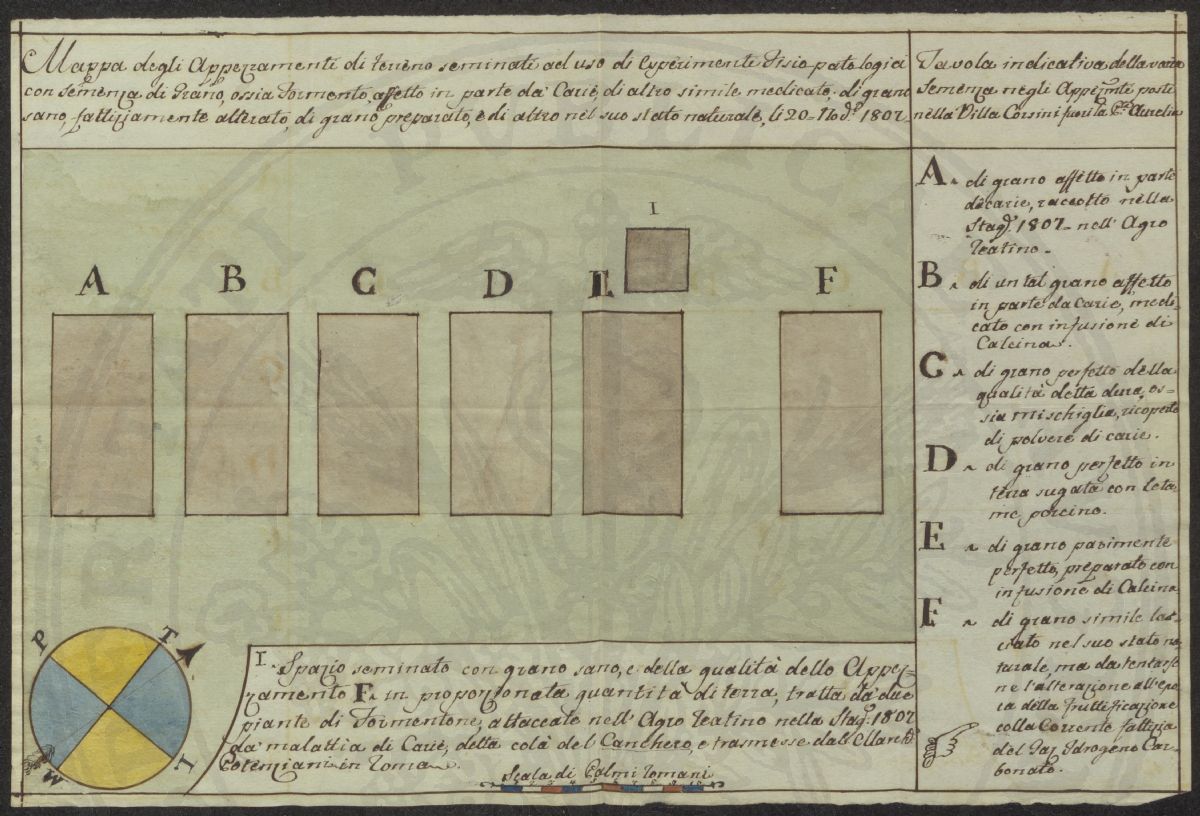 Mappa degli Appezzamenti di terreno seminati ad uso di Esperimenti Fisio-patologici
con semenza di Grano, ossia Formento, affetto in parte da Carie, di altro simile medicato, di grano
sano, fattiziamente alterato, di grano preparato, e di altro nel suo stato naturale, li 20 1807
Tavola indicativa della varia
Semenza negli posti
nella Villa Corsini fuori la Aurelia
I
A B C D E F
A. di grano affetto in parte
da carie, raccolto nella
Stagne. 1807 nell'Agro
Teatino.
B. di un tal grano affetto
in parte da Carie, medi-
cato con infusione di
Calcina.
C. di grano perfetto della
qualità detta dura, os=
sia mischiglia, ricoperto
di polvere di carie.
D. di grano perfetto in
terra sugata con leta-
me porcino.
E. di grano parimente
perfetto, preparato con
infusione di Calcina
F. di grano simile las-
ciato nel suo stato na-
turale, ma da tentarse
ne l'alterazione all'epo
ca della fruttificazione
colla Corrente fattizia
del Gaz Idrogeno Car-
bonato.
P T L M
I. Spazio seminato con grano sano, e della qualità dello Appez-
zamento F. in proporzionata quantità di terra, tratta da due
piante di Formentone, attaccate nell'Agro Teatino nella Stagne. 1807
da malattia di Carie, detta colà del Canchero, e trasmesse dall'
Potenziani in Roma.
Scala di Palmi Romani